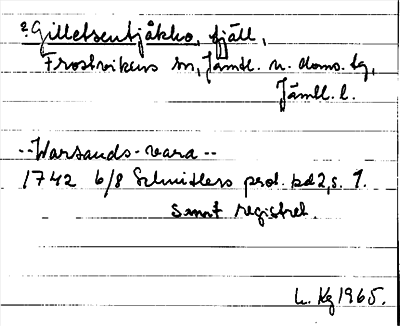 ? Gilletsentjåkko, fjäll,
Frostvikens sn, Jämtl. n. doms. tg,
Jämtl. l.
-- Warsands-vara --
1742 6/8 Schnitlers prot. bd 2, s. 1.
samt registret.
L. Kg 1965.